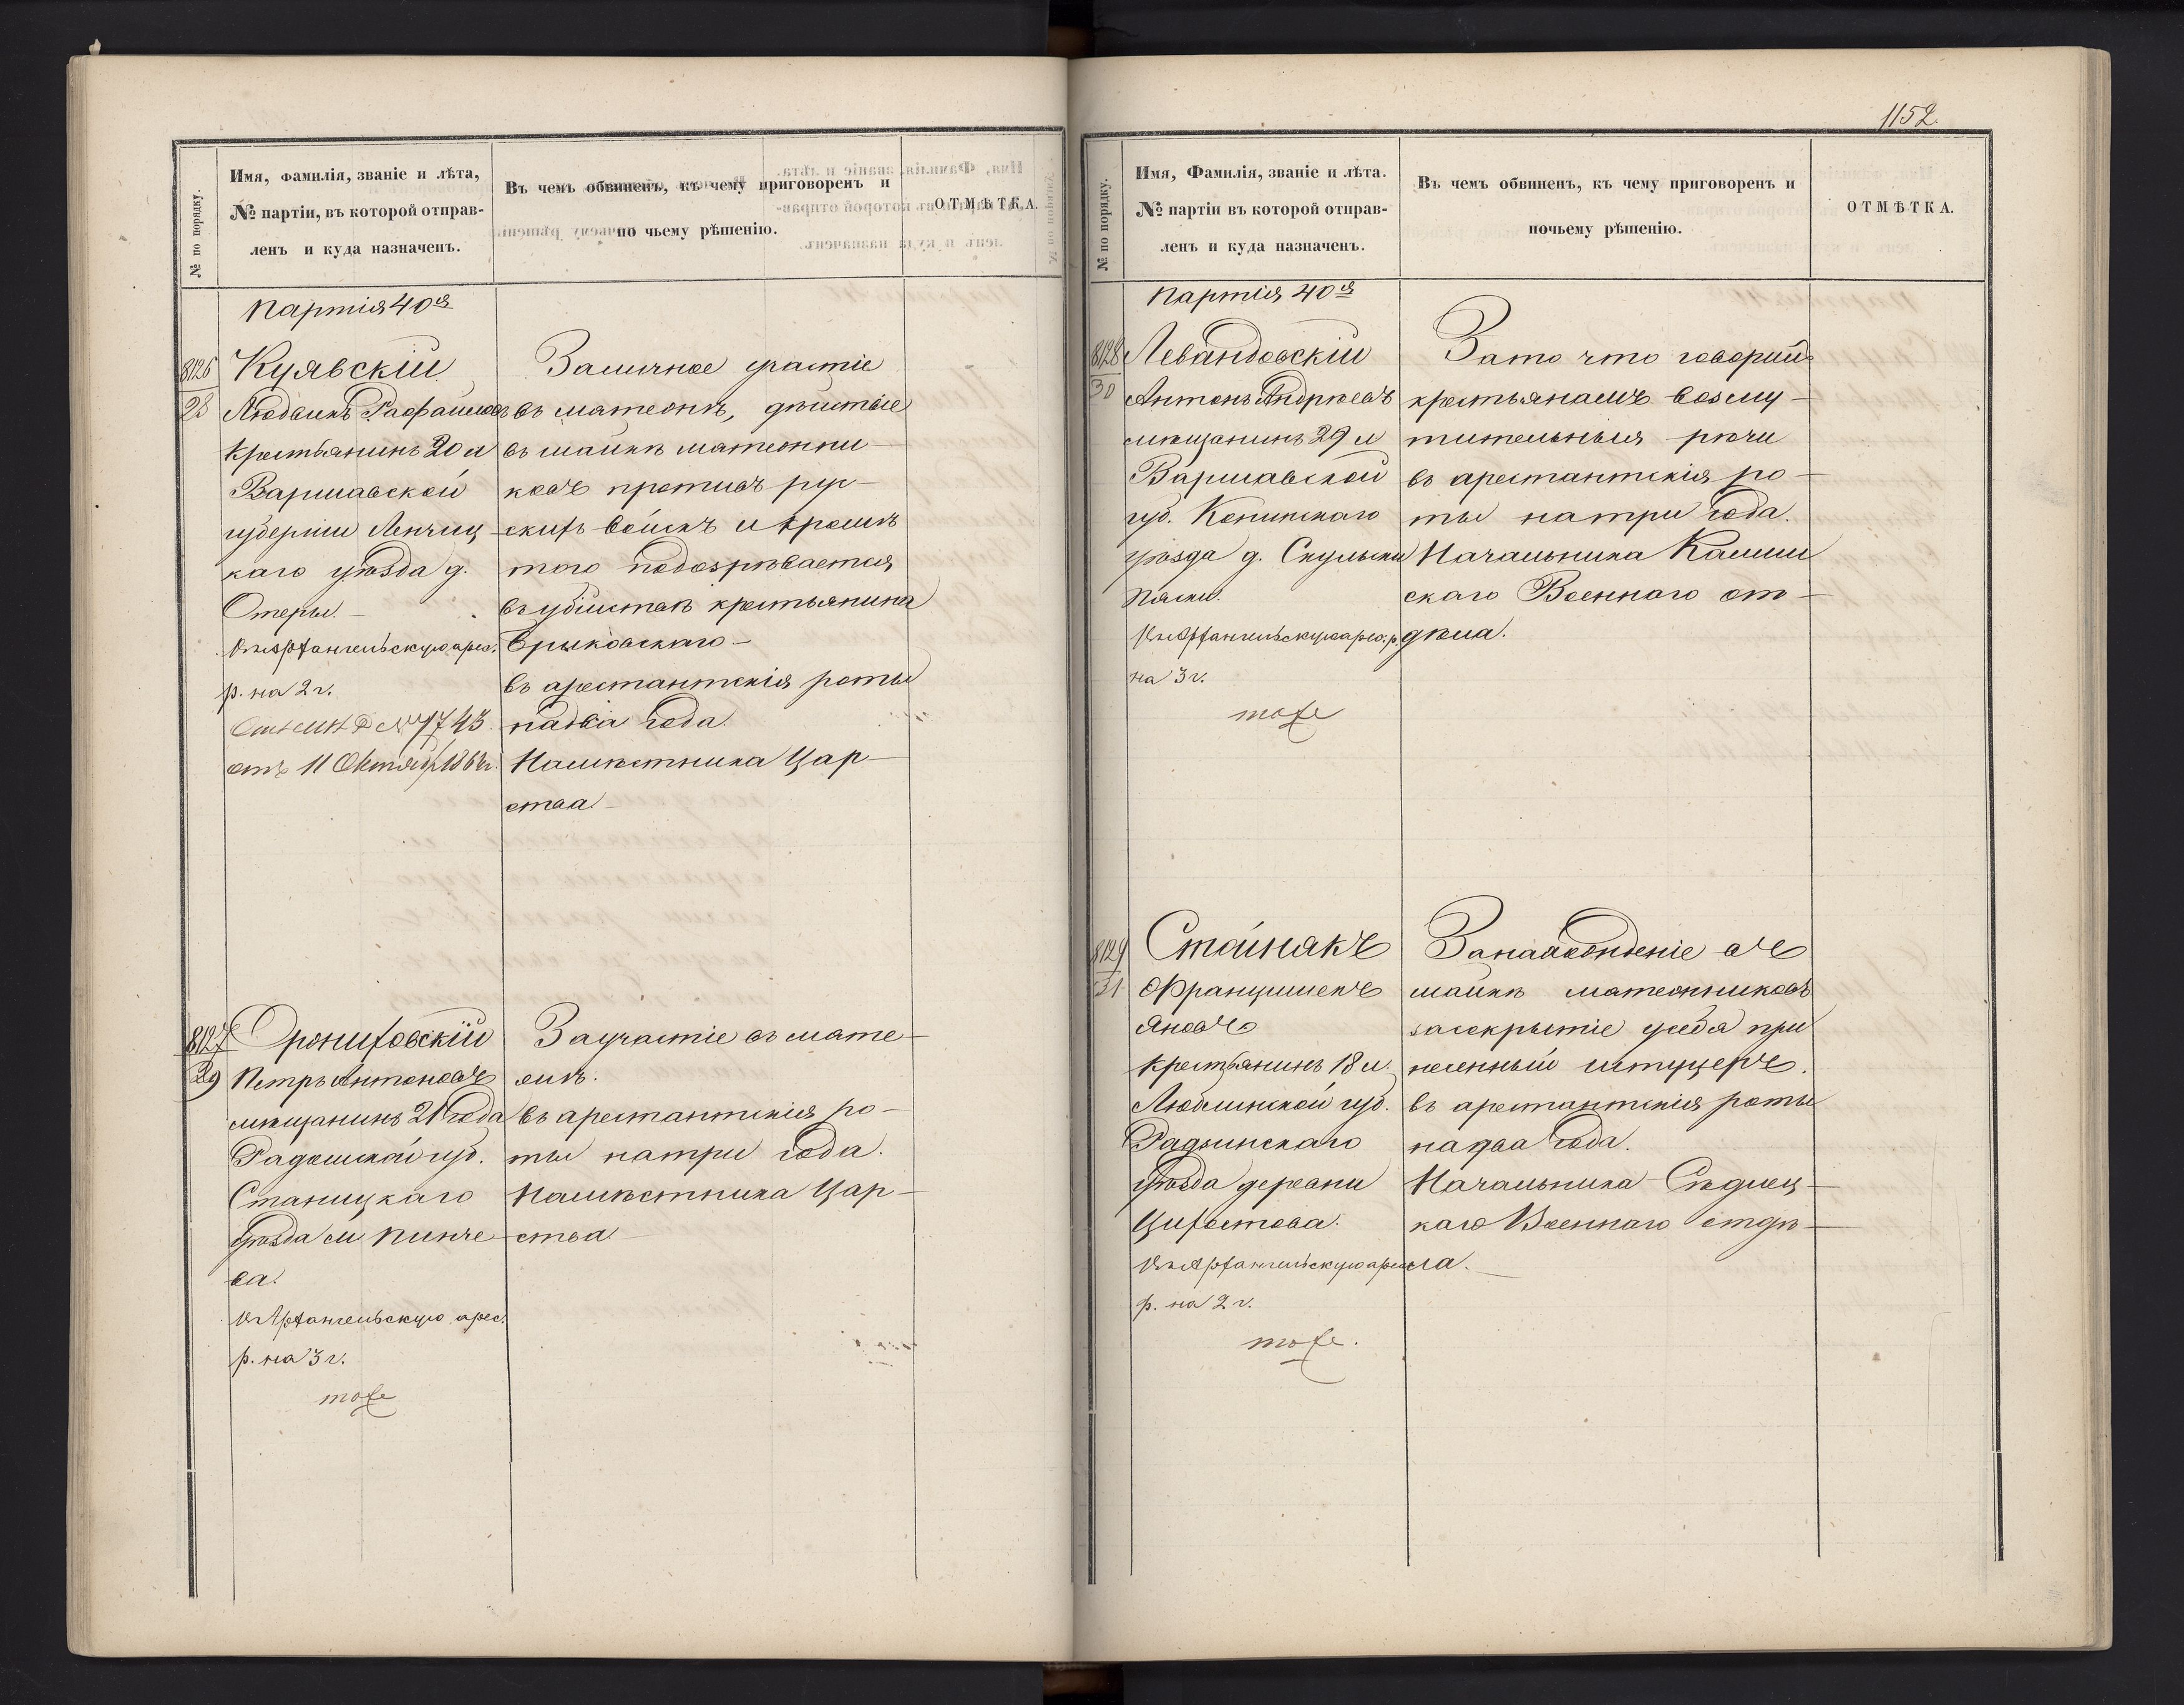 № по порядку.
Имя, фамилія, званіе и лѣта,
№ партіи, въ которой отправ-
ленъ и куда назначенъ.
Въ чемъ обвиненъ, къ чему приговоренъ и
по чьему рѣшенію.
ОТМѢТКА.
Партія 40я
8126
28
Куявскій
Людвикъ Рафаиловъ
Крестьянинъ 20 л
Варшавской
губерніи Ленчиц
каго уѣзда д.
Въ Архангельскую арес.
р. на 2 г.
№ 1743
отъ 11 Октября 1864 г.
За личное участіе
въ мятежѣ, дѣйствіе
въ шайкѣ мятежни
ковъ противъ рус-
скихъ войскъ и кромѣ
того подозрѣвается
въ убійствѣ крестьянина
Брыковскаго
въ арестантскія роты
на два года.
Намѣстника Цар-
ства
8127
29
Орониховскій
Петръ Антоновъ
мѣщанинъ 21 года
Радомской губ.
Станицкаго
уѣзда м Пинче
ва.
Въ Архангельскую арес.
р. на 3 г.
тоже
За участіе въ мяте-
жѣ.
въ арестантскія ро-
ты на три года.
Намѣстника Цар-
ства
1152.
№ по порядку.
Имя, Фамилія, званіе и лѣта.
№ партіи въ которой отправ-
ленъ и куда назначенъ.
Въ чемъ обвиненъ, къ чему приговоренъ и
почьему рѣшенію.
ОТМѢТКА.
Партія 40я
8128
30
Левандовскій
Антонъ Андреевъ
мѣщанинъ 29 л
Варшавской
губ. Конинскаго
уѣзда д. Скульски
Пяски.
Въ Архангельскую арес. р.
на 3 г.
тоже
За то что говорилъ
крестьянамъ возму-
тительныя рѣчи
въ арестантскія ро-
ты на три года.
Начальника Калиш
скаго Военнаго от-
дѣла.
8129
31
Стайнякъ
Францишекъ
Яновъ
Крестьянинъ 18 л.
Люблинской губ.
Радзинскаго
уѣзда деревни
Цихостова.
Въ Архангельскую арес
р. на 2 г.
тоже.
За нахожденіе въ
шайкѣ мятежниковъ
за сокрытіе у себя при
несенный штуцеръ.
въ арестантскія роты
на два года.
Начальника Сѣдлец-
каго Военнаго отдѣ-
ла.